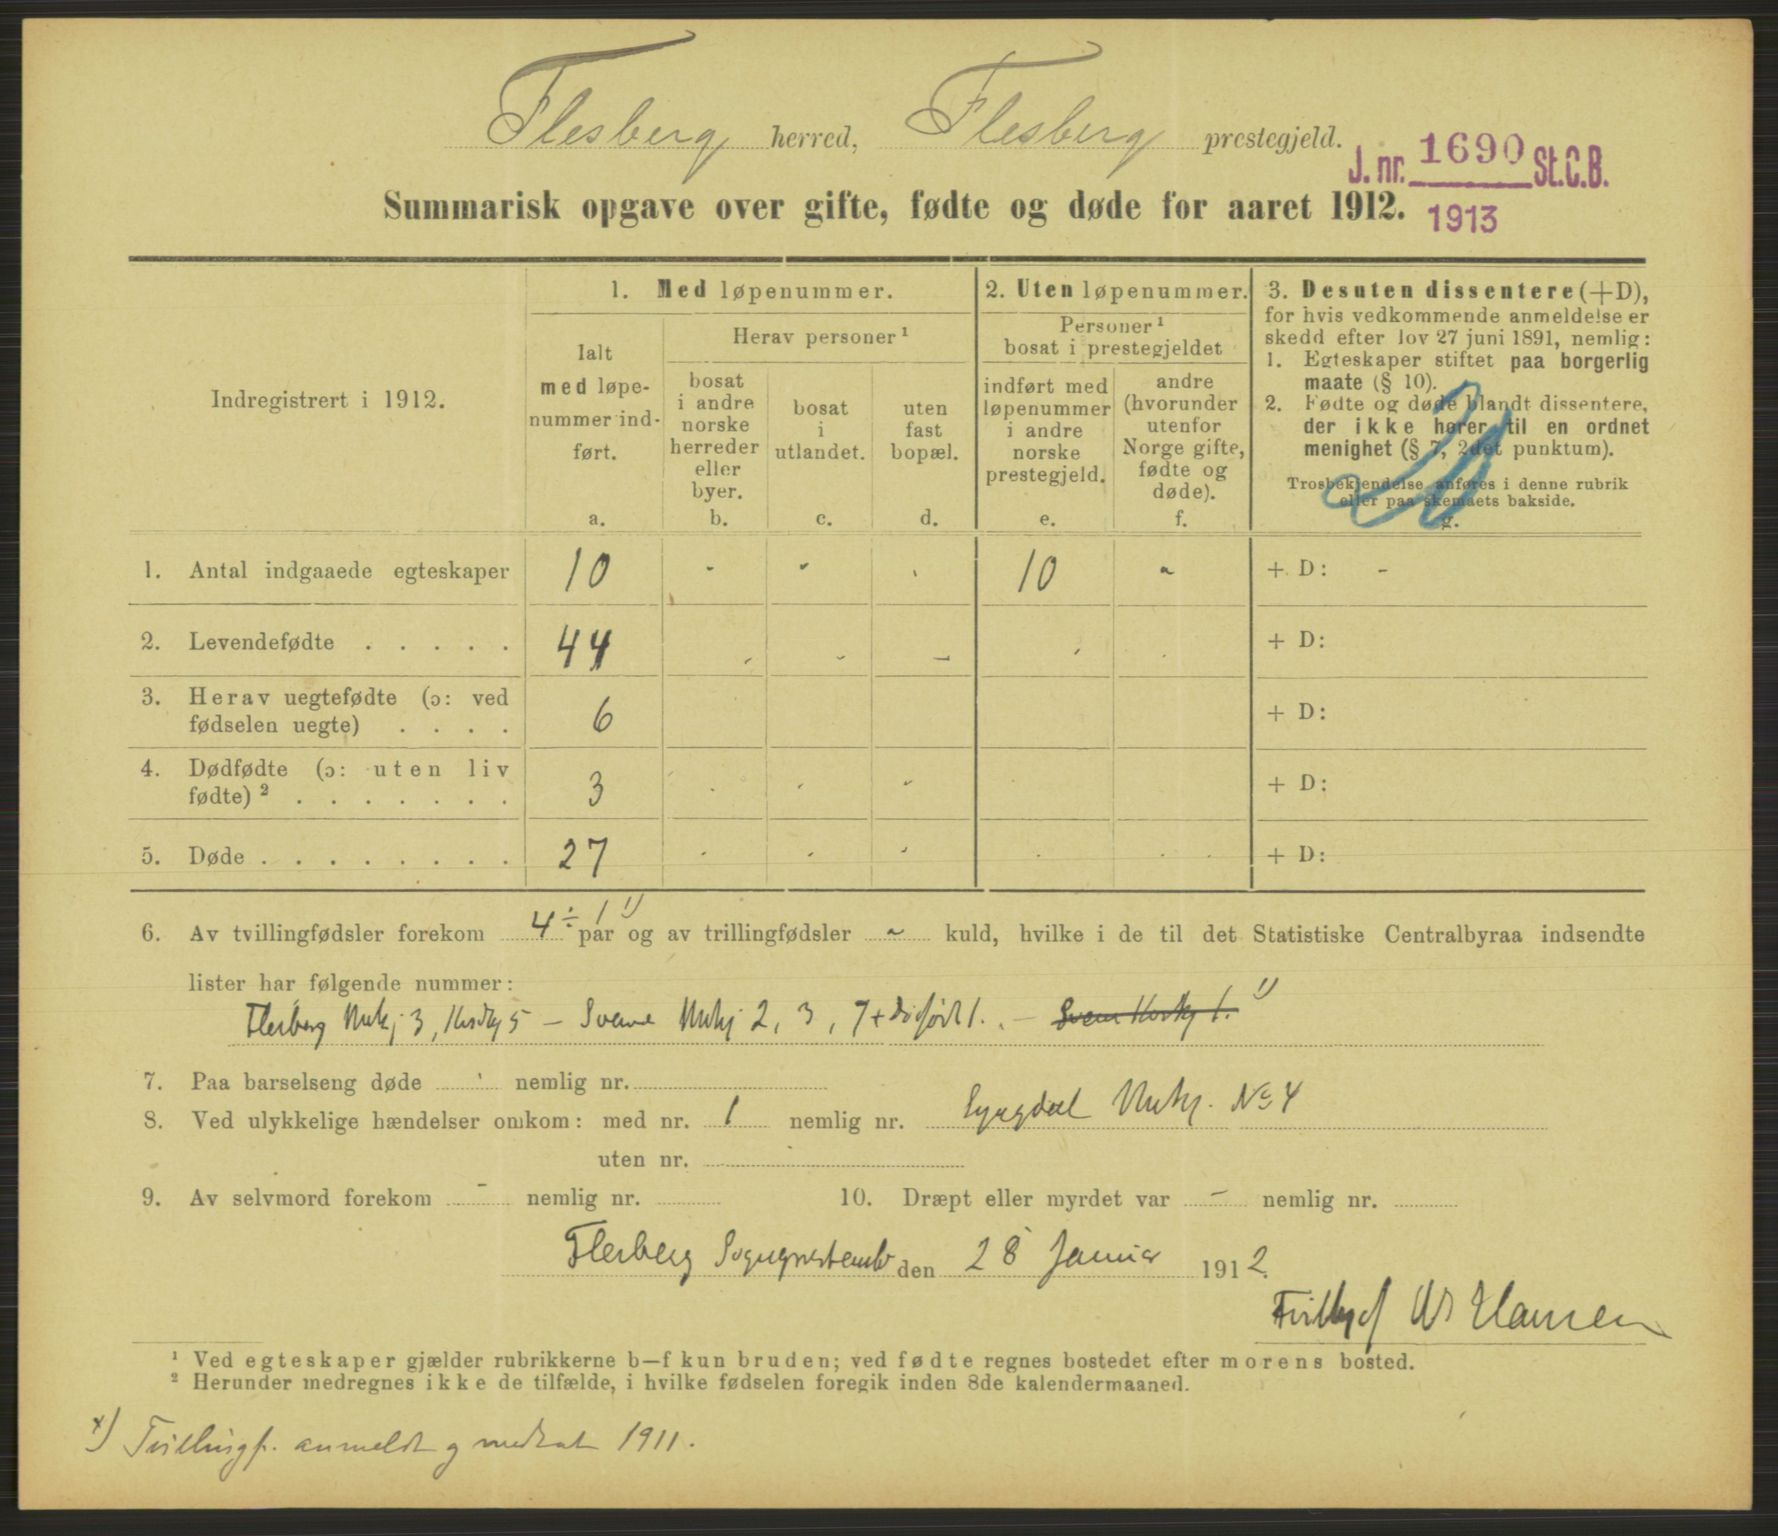 Flesberg herred, Flesberg prestegjeld.
J. nr. 1690 St.C.B.
1913
Summarisk opgave over gifte, fødte og døde for aaret 1912.
Indregistrert i 1912.
1. Med løpenummer.
Ialt
med løpe-
nummer ind-
ført.
a.
Herav personer ¹
bosat
i andre
norske
herreder
eller
byer.
b.
bosat
i
utlandet.
c.
uten
fast
bopæl.
d.
2. Uten løpenummer.
Personer ¹
bosat i prestegjeldet
indført med
løpenummer
i andre
norske
prestegjeld.
e.
andre
(hvorunder
utenfor
Norge gifte,
fødte og
døde).
f.
3. Desuten dissentere (+D),
for hvis vedkommende anmeldelse er
skedd efter lov 27 juni 1891, nemlig:
1. Egteskaper stiftet paa borgerlig
maate (§ 10).
2. Fødte og døde blandt dissentere,
der ikke hører til en ordnet
menighet (§ 7, 2det punktum).
Trosbekjendelse anføres i denne rubrik
eller paa skemaets bakside.
g.
1. Antal indgaaede egteskaper 10 - - - 10 - + D: -
2. Levendefødte . . . . . 44 - - - - - + D:
3. Herav uegtefødte (ɔ: ved
fødselen uegte) . . . . 6 + D:
4. Dødfødte (ɔ: uten liv
fødte) ² . . . . . . . 3 - - - + D:
5. Døde . . . . . . . . 27 - - - - - + D:
6. Av tvillingfødsler forekom 4 ÷ 1 ¹⁾ par og av trillingfødsler - kuld, hvilke i de til det Statistiske Centralbyraa indsendte
lister har følgende nummer:
Flesberg Mnkj 3, Kvdkj 5 - Svene Mnkj 2, 3, 7 + dødfødt 1. - Svene Kvdkj 1. ¹⁾
7. Paa barselseng døde - nemlig nr.
8. Ved ulykkelige hændelser omkom: med nr. 1 nemlig nr. Lyngdal Mnkj. No 4
uten nr.
9. Av selvmord forekom - nemlig nr.
10. Dræpt eller myrdet var - nemlig nr.
Flesberg Sogneprestemb den 28 Januar 1912.
W Hansen
¹ Ved egteskaper gjælder rubrikkerne b—f kun bruden; ved fødte regnes bostedet efter morens bosted.
² Herunder medregnes ikke de tilfælde, i hvilke fødselen foregik inden 8de kalendermaaned.
x) Tvillingf. anmeldt og medtat 1911.